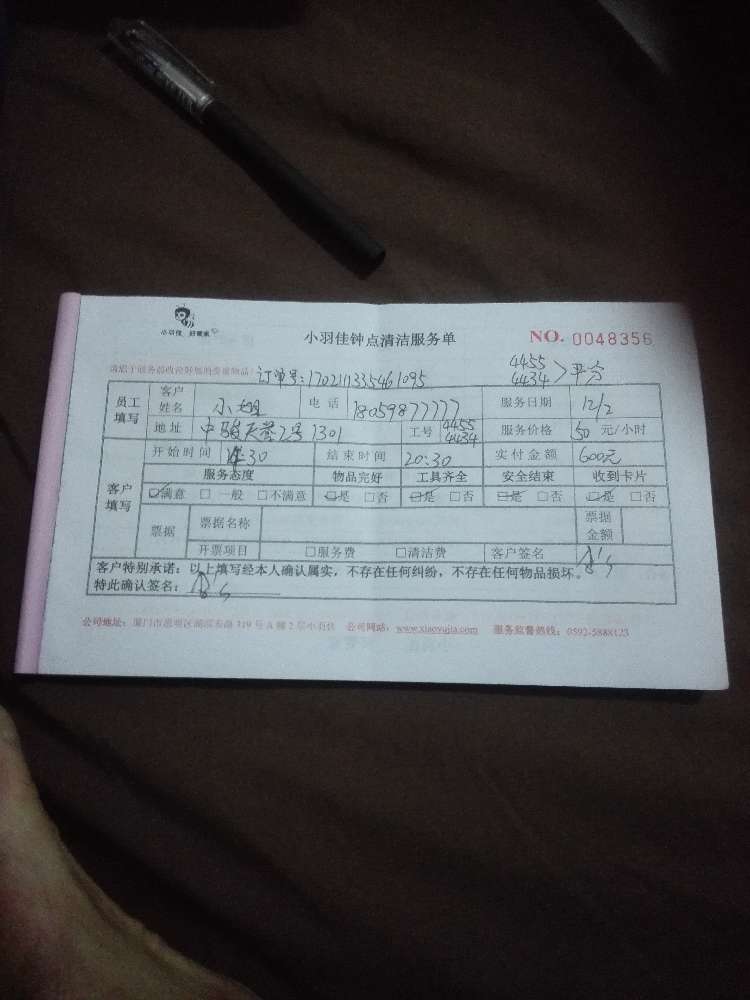 小羽佳 好管家
小羽佳钟点清洁服务单 NO. 0048356
4455
订单号:170211335461095 4434 >平分
员工填写 客户姓名 小姐 电话 18059877777 服务日期 12/2
地址 中骏天誉2号1301 工号 4455 4434 服务价格 50 元/小时
客户填写 开始时间 14:30 结束时间 20:30 实付金额 600元
服务态度 物品完好 工具齐全 安全结束 收到卡片
☑满意 □一般 □不满意 ☑是 □否 ☑是 □否 ☑是 □否 ☑是 □否
票据 票据名称 票据金额
开票项目 □服务费 □清洁费 客户签名
客户特别承诺:以上填写经本人确认属实,不存在任何纠纷,不存在任何物品损坏。
特此确认签名:
公司地址:厦门市思明区湖滨东路319号A幢2层小羽佳 公司网站:www.xiaoyujia.com 服务监督热线:0592-5888123